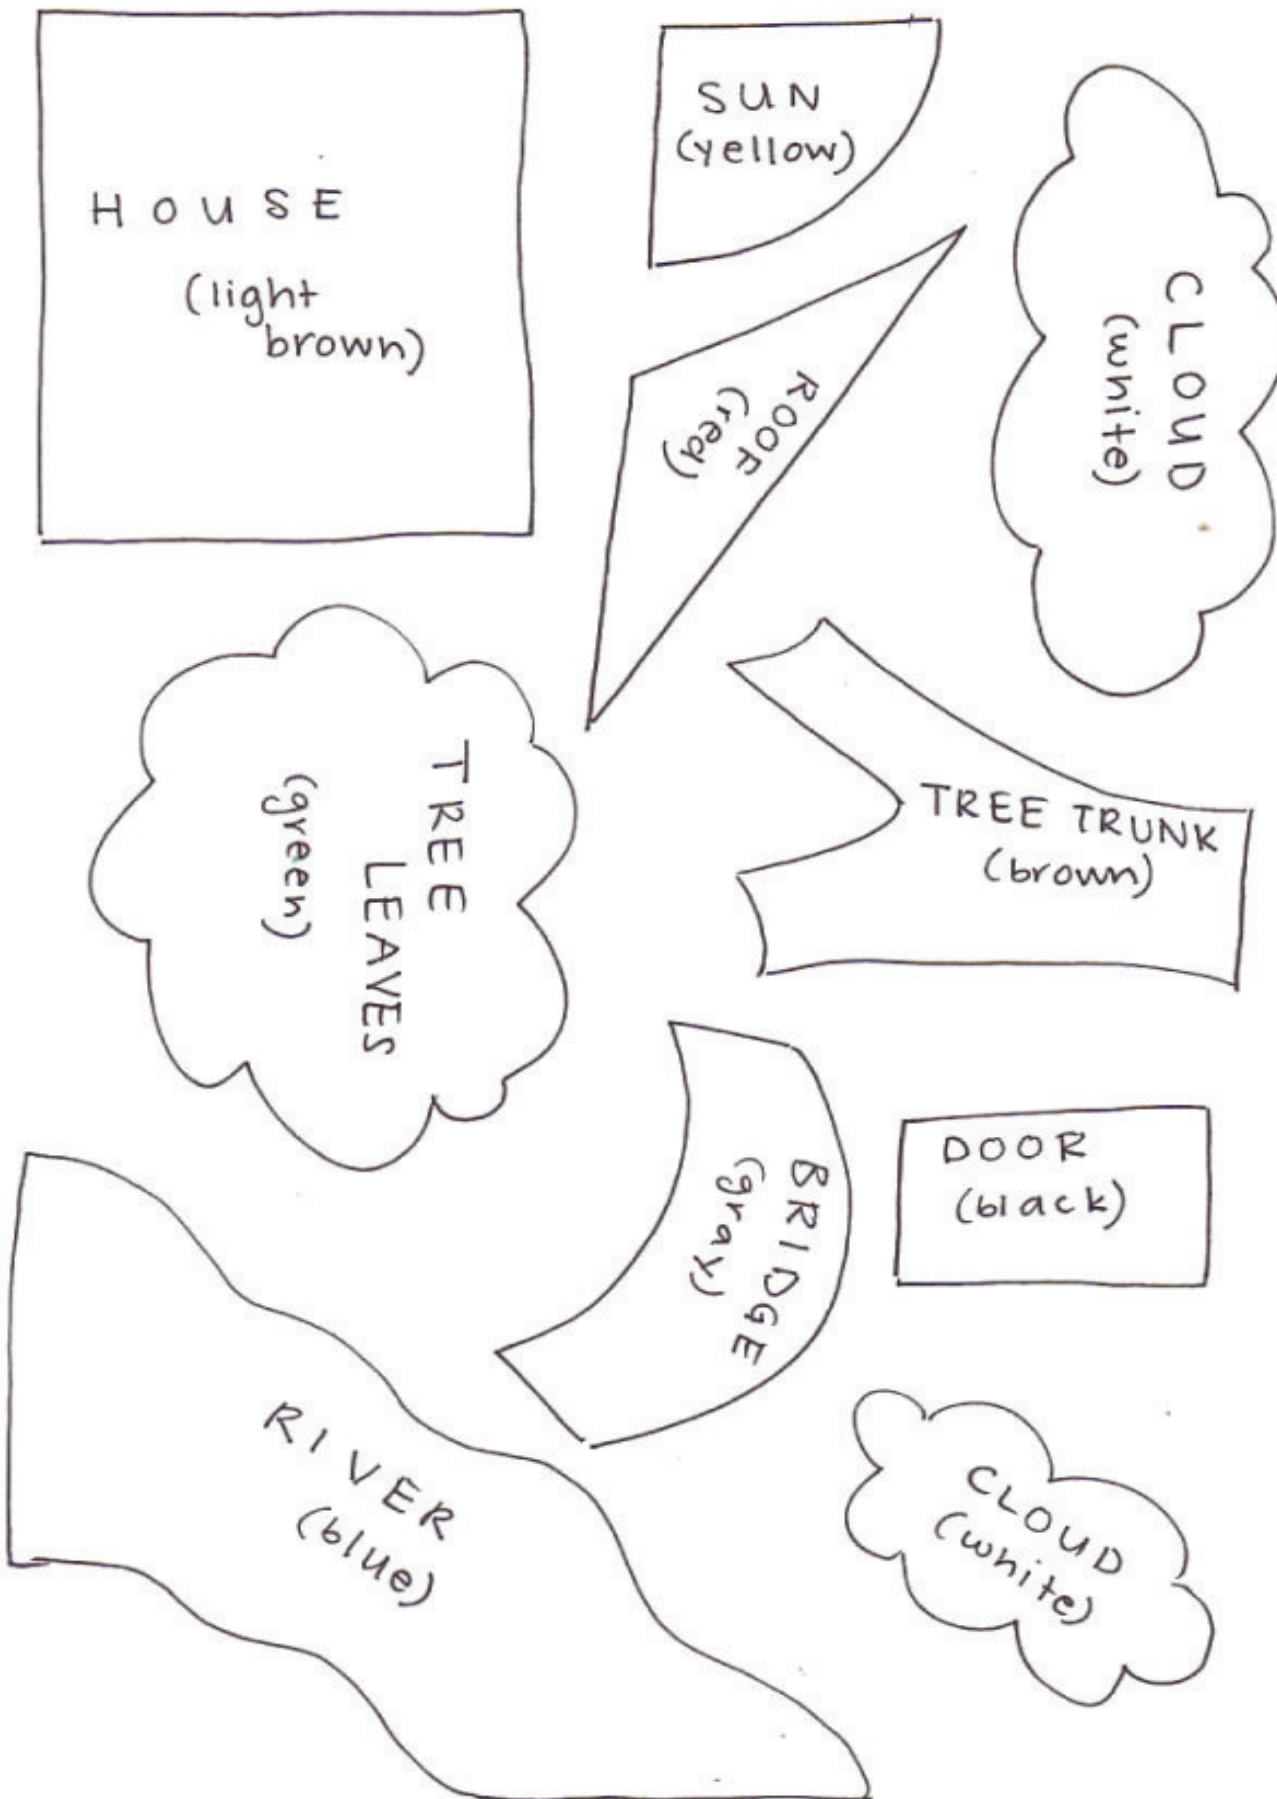 HOUSE
(light
brown)
SUN
(yellow)
CLOUD
(white)
ROOF
(red)
TREE
LEAVES
(green)
TREE TRUNK
(brown)
BRIDGE
(gray)
DOOR
(black)
RIVER
(blue)
CLOUD
(white)